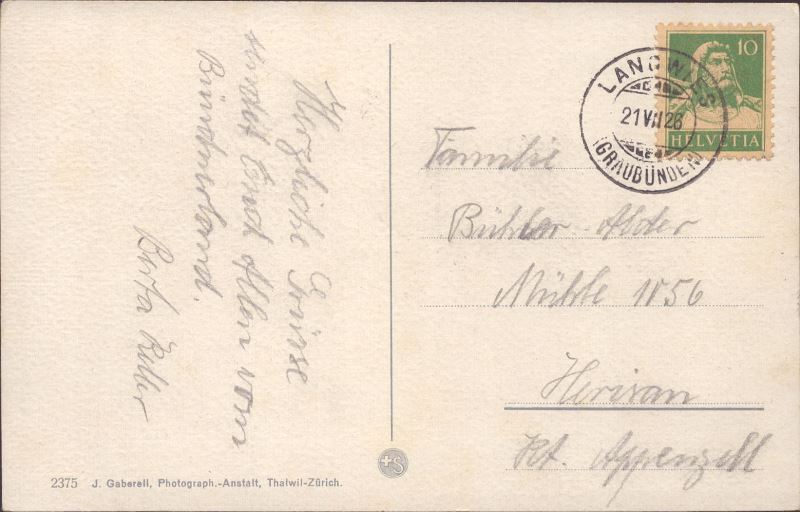 Herzliche Grüsse
sendet Euch Allen vom
Bündnerland.
Berta
10
HELVETIA
LANGWIES
21 VII 26
(GRAUBÜNDEN)
Familie
Bühler-Alder
Mühle 1056
Herisau
Kt. Appenzell
+S
2375 J. Gaberell, Photograph.-Anstalt, Thalwil-Zürich.